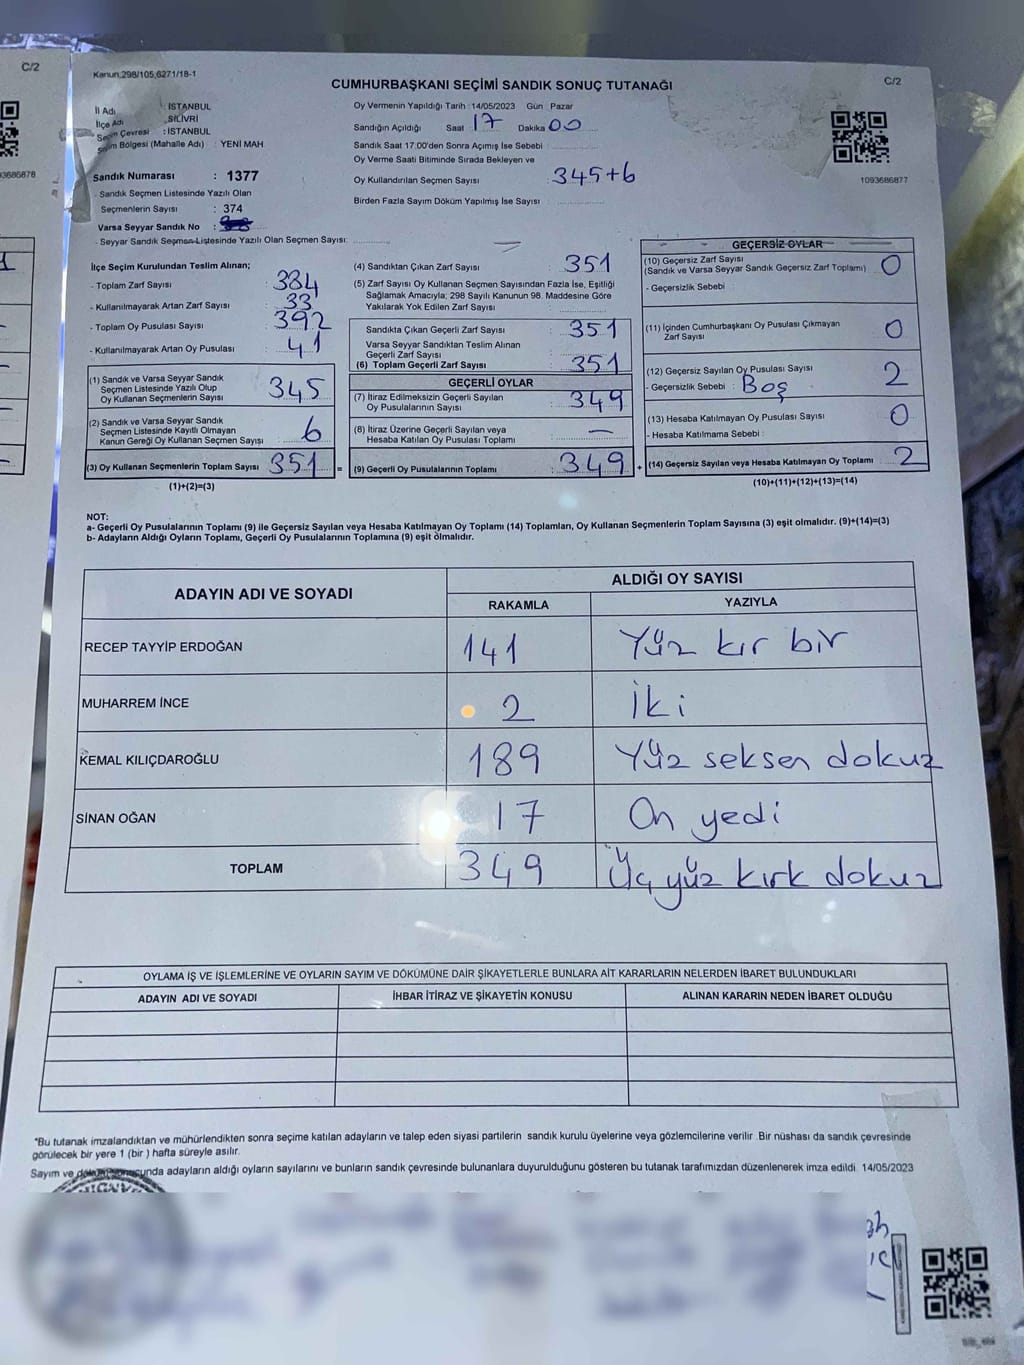 C/2
Kanun,298/105,6271/18-1
CUMHURBAŞKANI SEÇİMİ SANDIK SONUÇ TUTANAĞI
C/2
İl Adı : İSTANBUL
İlçe Adı : SİLİVRİ
Seçim Çevresi : İSTANBUL
Seçim Bölgesi (Mahalle Adı) : YENİ MAH
Sandık Numarası : 1377
- Sandık Seçmen Listesinde Yazılı Olan
Seçmenlerin Sayısı : 374
Varsa Seyyar Sandık No :
- Seyyar Sandık Seçmen Listesinde Yazılı Olan Seçmen Sayısı:
Oy Vermenin Yapıldığı Tarih :14/05/2023 Gün : Pazar
Sandığın Açıldığı Saat 17 Dakika 00
Sandık Saat 17:00'den Sonra Açımış İse Sebebi :
Oy Verme Saati Bitiminde Sırada Bekleyen ve
Oy Kullandırılan Seçmen Sayısı : 345+6
Birden Fazla Sayım Döküm Yapılmış İse Sayısı :
93686878
1093686877
İlçe Seçim Kurulundan Teslim Alınan;
- Toplam Zarf Sayısı : 384
- Kullanılmayarak Artan Zarf Sayısı : 33
- Toplam Oy Pusulası Sayısı : 392
- Kullanılmayarak Artan Oy Pusulası : 41
(1) Sandık ve Varsa Seyyar Sandık
Seçmen Listesinde Yazılı Olup
Oy Kullanan Seçmenlerin Sayısı : 345
(2) Sandık ve Varsa Seyyar Sandık
Seçmen Listesinde Kayıtlı Olmayan
Kanun Gereği Oy Kullanan Seçmen Sayısı : 6
(3) Oy Kullanan Seçmenlerin Toplam Sayısı : 351 =
(1)+(2)=(3)
(4) Sandıktan Çıkan Zarf Sayısı : 351
(5) Zarf Sayısı Oy Kullanan Seçmen Sayısından Fazla İse, Eşitliği
Sağlamak Amacıyla; 298 Sayılı Kanunun 98. Maddesine Göre
Yakılarak Yok Edilen Zarf Sayısı :
Sandıkta Çıkan Geçerli Zarf Sayısı : 351
Varsa Seyyar Sandıktan Teslim Alınan
Geçerli Zarf Sayısı :
(6) Toplam Geçerli Zarf Sayısı : 351
GEÇERLİ OYLAR
(7) İtiraz Edilmeksizin Geçerli Sayılan
Oy Pusulalarının Sayısı : 349
(8) İtiraz Üzerine Geçerli Sayılan veya
Hesaba Katılan Oy Pusulası Toplamı : —
(9) Geçerli Oy Pusulalarının Toplamı : 349 +
GEÇERSİZ OYLAR
(10) Geçersiz Zarf Sayısı
(Sandık ve Varsa Seyyar Sandık Geçersiz Zarf Toplamı) : 0
- Geçersizlik Sebebi :
(11) İçinden Cumhurbaşkanı Oy Pusulası Çıkmayan
Zarf Sayısı : 0
(12) Geçersiz Sayılan Oy Pusulası Sayısı : 2
- Geçersizlik Sebebi : Boş
(13) Hesaba Katılmayan Oy Pusulası Sayısı : 0
- Hesaba Katılmama Sebebi :
(14) Geçersiz Sayılan veya Hesaba Katılmayan Oy Toplamı : 2
(10)+(11)+(12)+(13)=(14)
NOT:
a- Geçerli Oy Pusulalarının Toplamı (9) ile Geçersiz Sayılan veya Hesaba Katılmayan Oy Toplamı (14) Toplamları, Oy Kullanan Seçmenlerin Toplam Sayısına (3) eşit olmalıdır. (9)+(14)=(3)
b- Adayların Aldığı Oyların Toplamı, Geçerli Oy Pusulalarının Toplamına (9) eşit olmalıdır.
ADAYIN ADI VE SOYADI
ALDIĞI OY SAYISI
RAKAMLA YAZIYLA
RECEP TAYYİP ERDOĞAN 141 Yüz kır bir
MUHARREM İNCE 2 İki
KEMAL KILIÇDAROĞLU 189 Yüz seksen dokuz
SİNAN OĞAN 17 On yedi
TOPLAM 349 Üç yüz kırk dokuz
OYLAMA İŞ VE İŞLEMLERİNE VE OYLARIN SAYIM VE DÖKÜMÜNE DAİR ŞİKAYETLERLE BUNLARA AİT KARARLARIN NELERDEN İBARET BULUNDUKLARI
ADAYIN ADI VE SOYADI İHBAR İTİRAZ VE ŞİKAYETİN KONUSU ALINAN KARARIN NEDEN İBARET OLDUĞU
*Bu tutanak imzalandıktan ve mühürlendikten sonra seçime katılan adayların ve talep eden siyasi partilerin sandık kurulu üyelerine veya gözlemcilerine verilir. Bir nüshası da sandık çevresinde
görülecek bir yere 1 (bir ) hafta süreyle asılır.
Sayım ve döküm sonucunda adayların aldığı oyların sayılarını ve bunların sandık çevresinde bulunanlara duyurulduğunu gösteren bu tutanak tarafımızdan düzenlenerek imza edildi. 14/05/2023